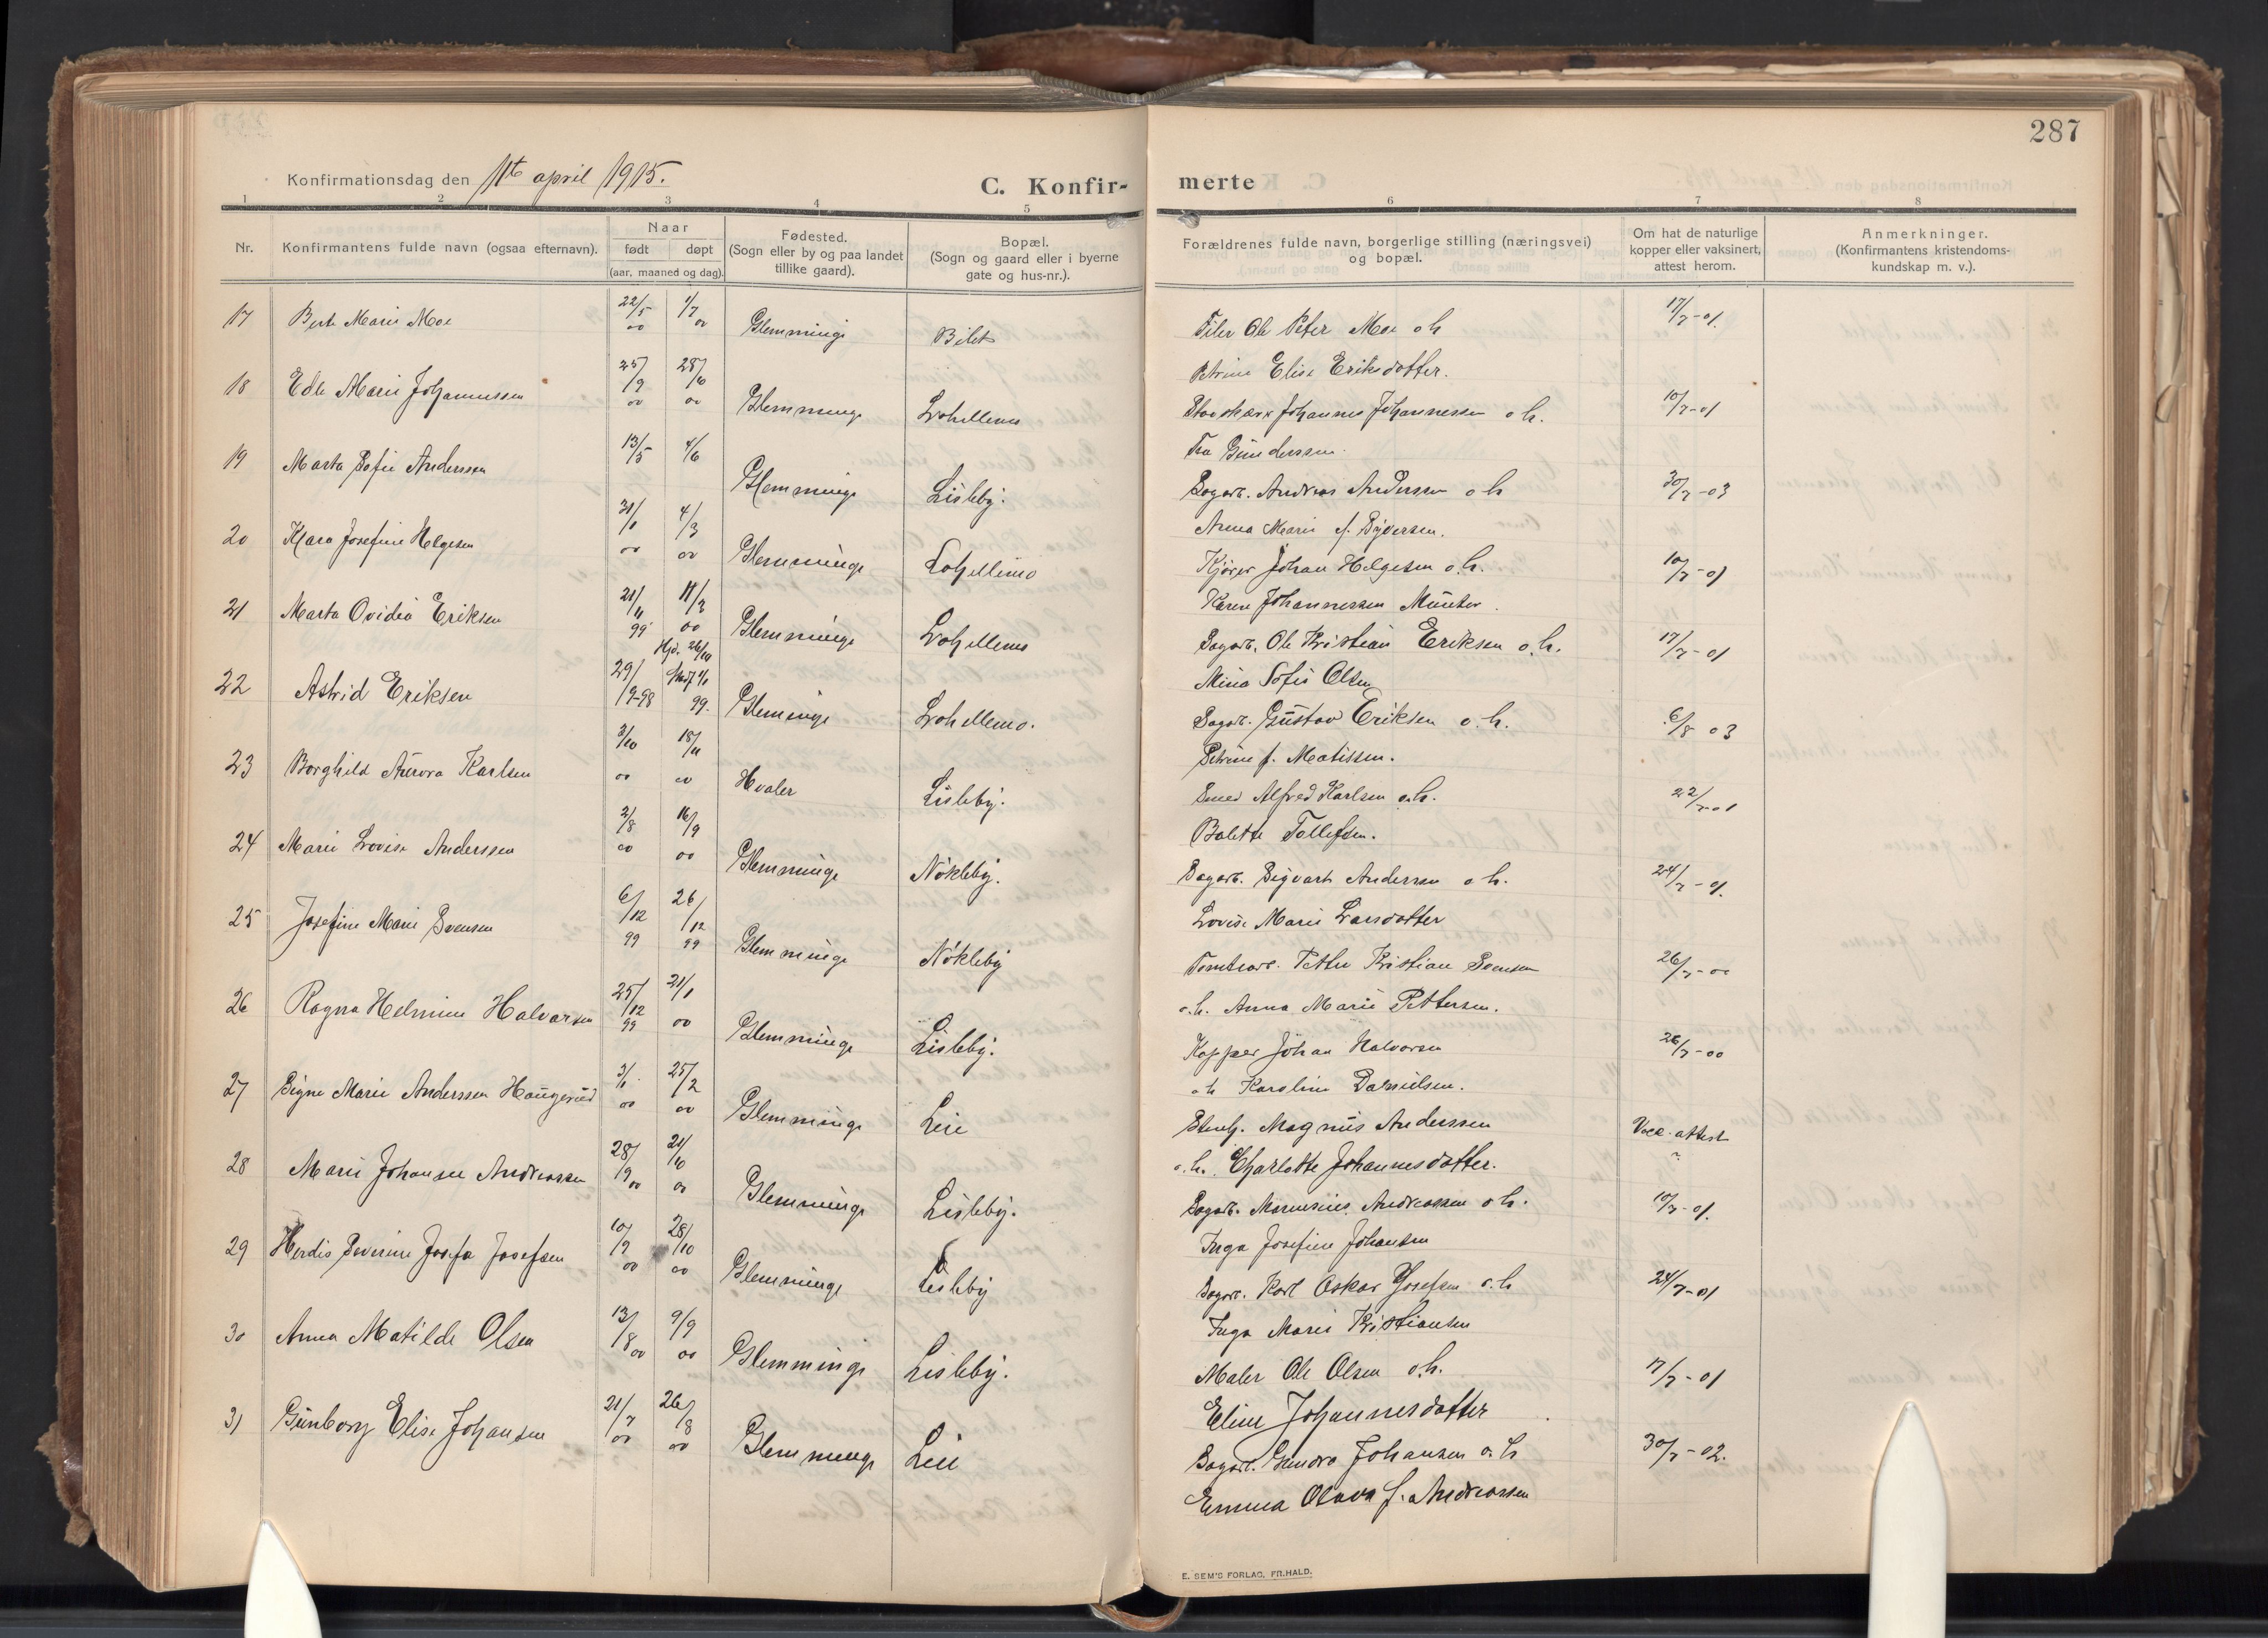 287
Konfirmationsdag den 11te april 1915.
C. Konfir-
merte
1 2 3 4 5 6 7 8
Nr.
Konfirmantens fulde navn (ogsaa efternavn).
Naar
født døpt
(aar, maaned og dag).
Fødested.
(Sogn eller by og paa landet
tillike gaard).
Bopæl.
(Sogn og gaard eller i byerne
gate og hus-nr.).
Forældrenes fulde navn, borgerlige stilling (næringsvei)
og bopæl.
Om hat de naturlige
kopper eller vaksinert,
attest herom.
Anmerkninger.
(Konfirmantens kristendoms-
kundskap m. v.).
17 Marie Moe 22/5 00 1/7 00 Glemminge
Ole Peter Moe o h 17/7-01.
Petrine Elise Eriksdatter.
18 Edle Marie Johannessen 25/9 00 28/10 00 Glemminge
Johannes Johannessen o h. 10/7-01
Gunderssen.
19 Marta Sofie Anderssen 13/5 4/6 Glemminge Lisleby.
Sagarb. Andreas Anderssen o h 30/7-03
Anna Marie f. Syversen.
20 Klara Josefine Helgesen 31/1 00 4/3 00 Glemminge
Kjører Johan Helgesen o. h. 10/7-01
Karen Johannessen Munter.
21 Marta Ovidia Eriksen 21/11 99 11/3 00 Glemminge
Sagarb. Ole Kristian Eriksen o. h. 17/7-01
Mina Sofie Olsen
22 Astrid Eriksen 29/9-98 Hjd. 26/10 99. Glemminge
Sagarb. Gustav Eriksen o. h. 6/8 03
Petrine f. Matissen.
23 Borghild Aurora Karlsen 3/10 00 18/11 00 Hvaler Lisleby.
Smed Alfred Karlsen o. h. 22/7-01
Bolette Tollefsen.
24 Marie Lovise Anderssen 2/8 00 16/9 00 Glemminge Nökleby.
Sagarb. Sigvart Anderssen o h. 24/7-01.
Lovise Marie Larsdatter
25 Josefine Marie Svensen 6/12 99 26/12 99 Glemminge Nökleby
Tomtearb. Petter Kristian Svensen 26/7-00
o. h. Anna Marie Pettersen.
26 Ragna Helmine Halvorsen 25/12 99 21/1 00 Glemminge Lisleby.
Johan Halvorsen 26/7-00
o h Karoline Danielsen.
27 Signe Marie Anderssen Haugerud 3/1 00 25/2 00 Glemminge Leie
Stenh. Magnus Anderssen Vacc. attest
o. h. Charlotte Johannesdatter.
28 Marie Johanne Andreassen 28/9 00 21/10 00 Glemminge Lisleby.
Sagarb. Andreassen o h. 10/7-01.
Inga Josefine Johansen
29 Herdis Severine Josefa Josefsen 10/9 00 28/10 00 Glemminge Lisleby
Sagarb. Karl Oskar Josefsen o. h 24/7-01
Inga Marie Kristiansen
30 Anna Matilde Olsen 13/8 00 9/9 00 Glemminge Lisleby.
Maler Ole Olsen o. h. 17/7-01
Eline Johannesdatter
31 Gunborg Elise Johansen 21/7 00 26/8 00 Glemminge Leie
Sagarb. Johansen o. h 30/7-02.
Emma Olava f. Andreassen
E. SEM'S FORLAG, FR.HALD.